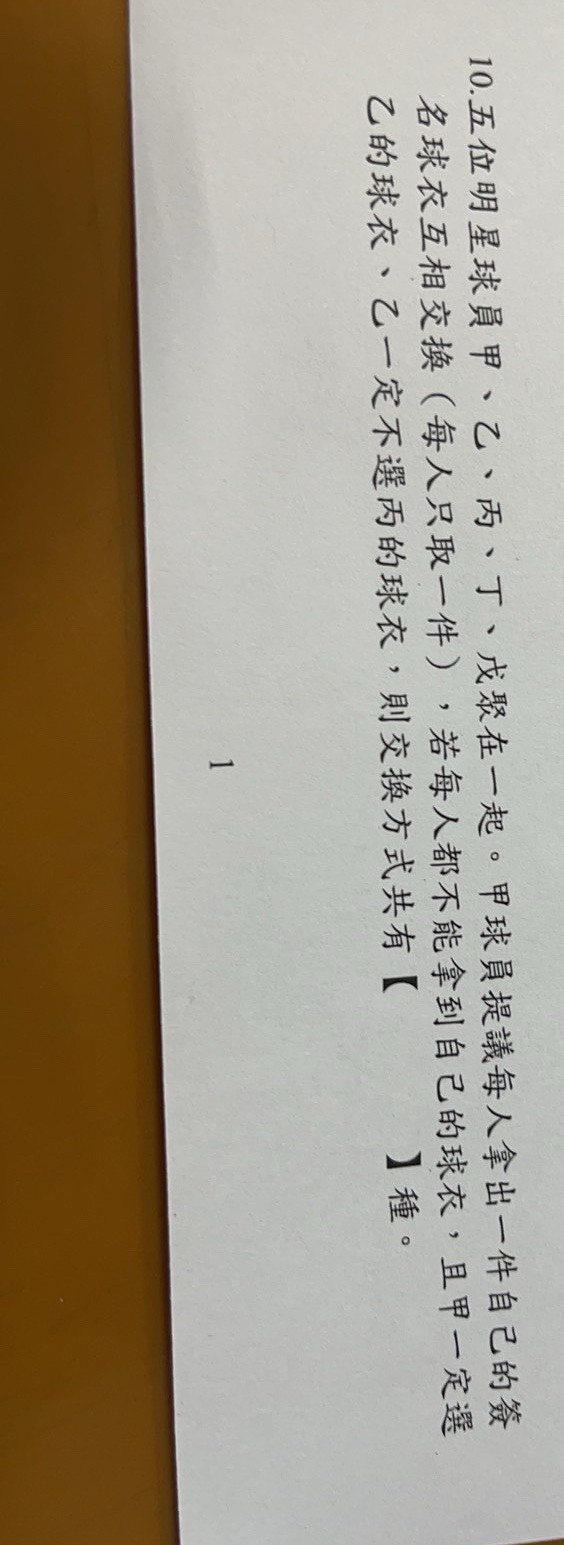 10.五位明星球員甲、乙、丙、丁、戊聚在一起。甲球員提議每人拿出一件自己的簽
名球衣互相交換(每人只取一件),若每人都不能拿到自己的球衣,且甲一定選
乙的球衣、乙一定不選丙的球衣,則交換方式共有【 】種。
1